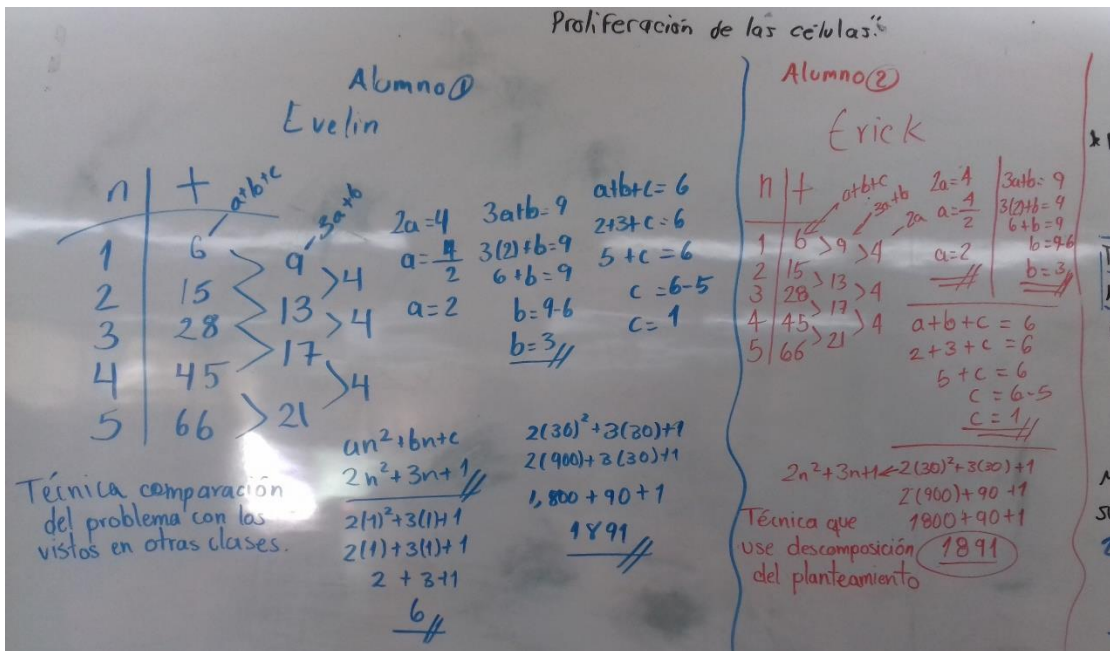 Proliferación de las células."
Alumno ①
Evelin
n | t
a+b+c
3a+b
1 | 6
2 | 15
3 | 28
4 | 45
5 | 66
9
13
17
21
4
4
4
2a=4
a=4/2
a=2
3a+b=9
3(2)+b=9
6+b=9
b=9-6
b=3//
a+b+c=6
2+3+c=6
5+c=6
c=6-5
c=1
an²+bn+c
2n²+3n+1//
2(1)²+3(1)+1
2(1)+3(1)+1
2+3+1
6//
2(30)²+3(30)+1
2(900)+3(30)+1
1,800+90+1
1891//
Técnica comparación
del problema con los
vistos en otras clases.
Alumno ②
Erick
n | t
a+b+c
3a+b
2a
1 | 6 > 9 > 4
2 | 15 > 13 > 4
3 | 28 > 17 > 4
4 | 45 > 21
5 | 66
2a=4
a=4/2
a=2//
3a+b=9
3(2)+b=9
6+b=9
b=9-6
b=3//
a+b+c=6
2+3+c=6
5+c=6
c=6-5
c=1//
2n²+3n+1←2(30)²+3(30)+1
2(900)+90+1
1800+90+1
1891
Técnica que
use descomposición
del planteamiento